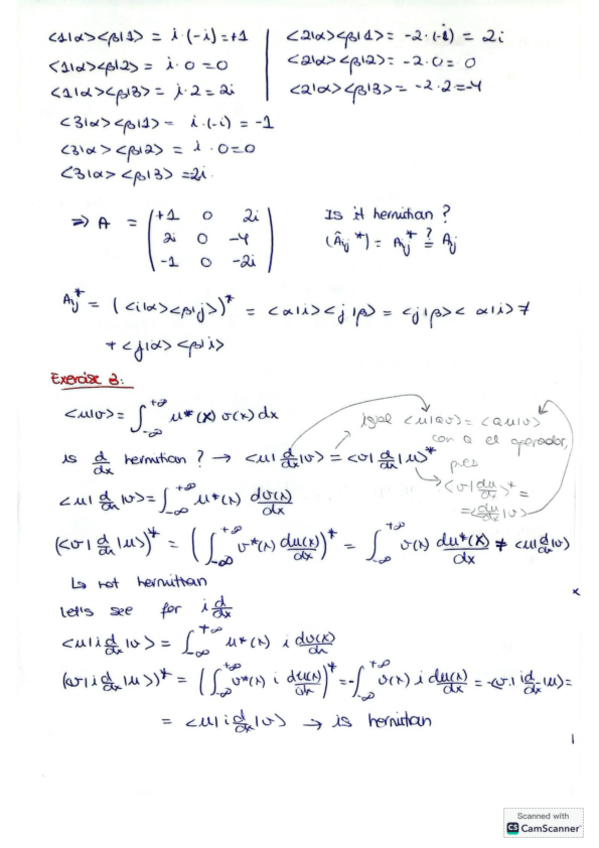 <1|α><β|1> = i·(-i) = +1
<1|α><β|2> = i·0 = 0
<1|α><β|3> = i·2 = 2i
<2|α><β|1> = -2·(-i) = 2i
<2|α><β|2> = -2·0 = 0
<2|α><β|3> = -2·2 = -4
<3|α><β|1> = i·(-i) = -1
<3|α><β|2> = i·0 = 0
<3|α><β|3> = 2i
=> A = ( +1 0 2i
2i 0 -4
-1 0 -2i )
Is it hermitian?
(Âij*) = Aij* ?= Aj
Aij* = (<i|α><β|j>)* = <α|i><j|β> = <j|β><α|i> ≠
≠ <j|α><β|i>
Exercise 3:
<u|v> = ∫-∞+∞ u*(x) v(x) dx
igual <u|av> = <au|v>
con a el operador,
pues
<v|du/dx>* =
= <du/dx|v>
is d/dx hermitian? → <u|d/dx|v> = <v|d/dx|u>*
<u|d/dx|v> = ∫-∞+∞ u*(x) dv(x)/dx
(<v|d/dx|u>)* = (∫-∞+∞ v*(x) du(x)/dx)* = ∫-∞+∞ v(x) du*(x)/dx ≠ <u|d/dx|v>
↳ not hermitian
Let's see for i d/dx
<u|i d/dx|v> = ∫-∞+∞ u*(x) i dv(x)/dx
(<v|i d/dx|u>)* = (∫-∞+∞ v*(x) i du(x)/dx)* = -∫-∞+∞ v(x) i du(x)/dx = -<v|i d/dx|u> =
= <u|i d/dx|v> → is hermitian
Scanned with
CS CamScanner